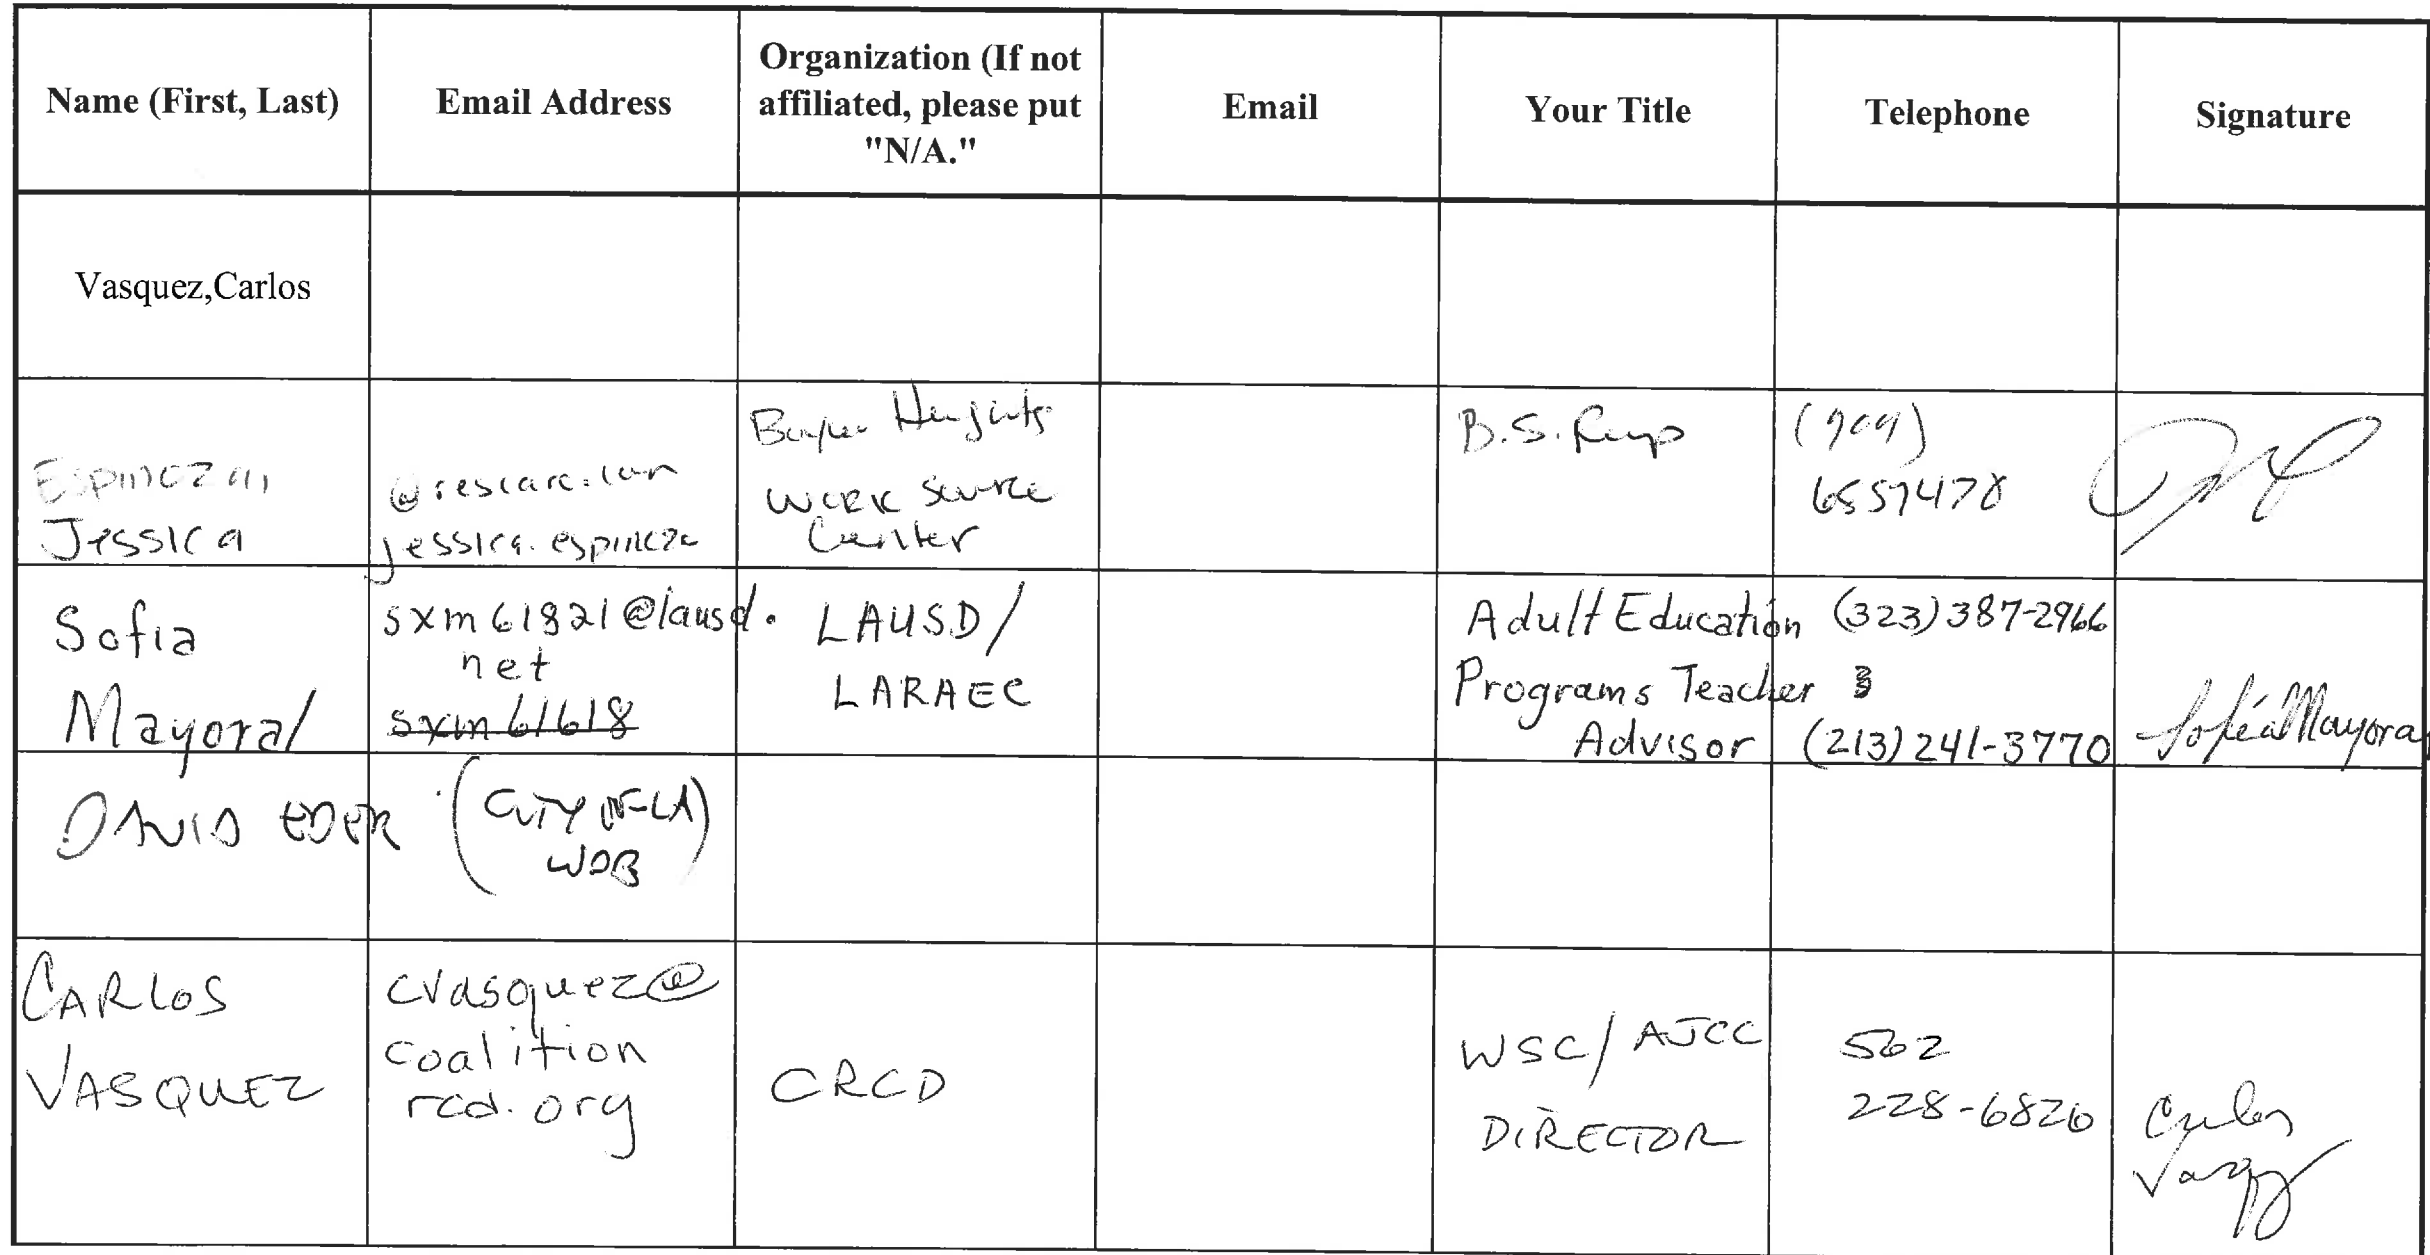 Name (First, Last)
Email Address
Organization (If not
affiliated, please put
"N/A."
Email
Your Title
Telephone
Signature
Vasquez,Carlos
Espinoza,
Jessica
@rescare.com
jessica.espinoza
Heights
Work Source
Center
B.S. Rep
(909)
6557478
Sofia
Mayoral
sxm61821@lausd.
net
sxm61618
LAUSD/
LARAEC
Adult Education
Programs Teacher
Advisor
(323)387-2966
(213)241-3770
Sofía Mayoral
DAVID EDER
(CITY OF LA)
WDB
CARLOS
VASQUEZ
cvasquez@
coalition
rcd.org
CRCD
WSC/AJCC
DIRECTOR
562
228-6820
Carlos